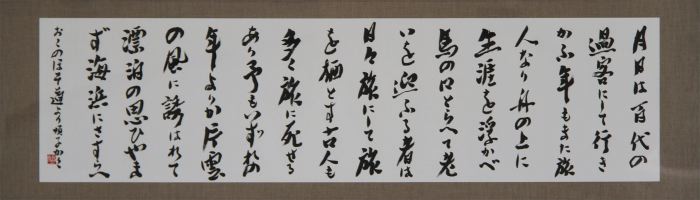 月日は百代の
過客にして行き
かふ年もまた旅
人なり舟の上に
生涯を浮かべ
馬の口とらへて老
いを迎ふる者は
日々旅にして旅
を栖とす古人も
多く旅に死せる
あり予もいずれの
年よりか片雲
の風に誘はれて
漂泊の思ひやま
ず海浜にさすらへ
おくのほそ道より